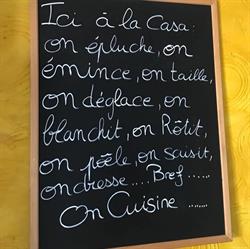 Ici à la Casa:
on épluche, on
émince, on taille,
on déglace, on
blanchit, on Rôtit,
on poêle, on saisit,
on dresse.... Bref ......
On Cuisine ......